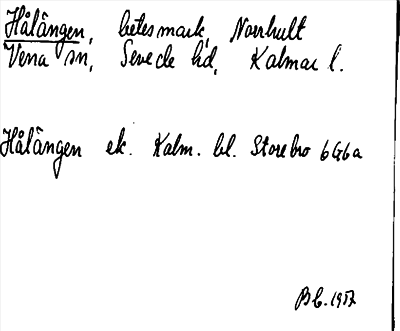 Hålängen, betesmark, Norrhult
Vena sn, Sevede hd, Kalmar l.
Hålängen ek. Kalm. bl. Storebro 6G6a
Bb. 1957